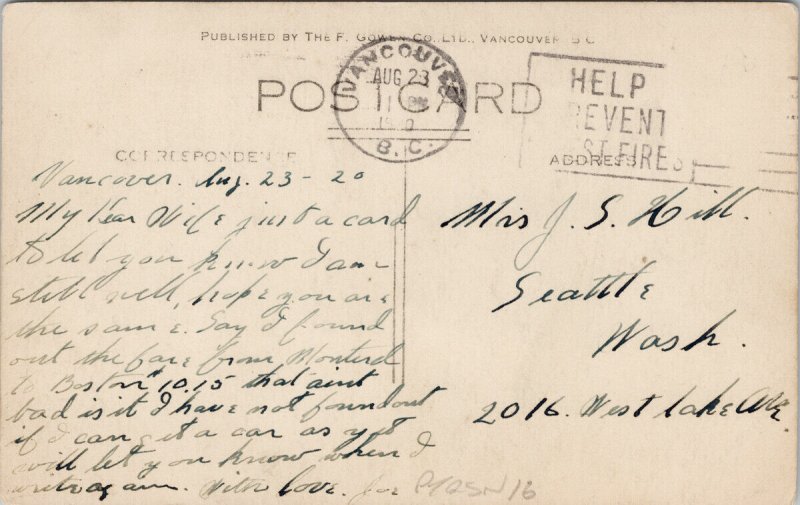 PUBLISHED BY THE F. GOWEN CO. LTD., VANCOUVER B.C.
POST CARD
VANCOUVER
AUG 23
11 PM
B.C.
HELP
PREVENT
FIRES
CORRESPONDENCE
ADDRESS
Vancover. Aug. 23 - 20
My Dear Wife just a card
to let you know I am
still well, hope you are
the same. Say I found
out the fare from Montreal
to Boston 10.15 that aint
bad is it I have not found out
if I can get a car as yet
will let you know when I
write again. With love. Joe
Mrs J. S. Hill.
Seattle
Wash.
2016. West lake Ave.